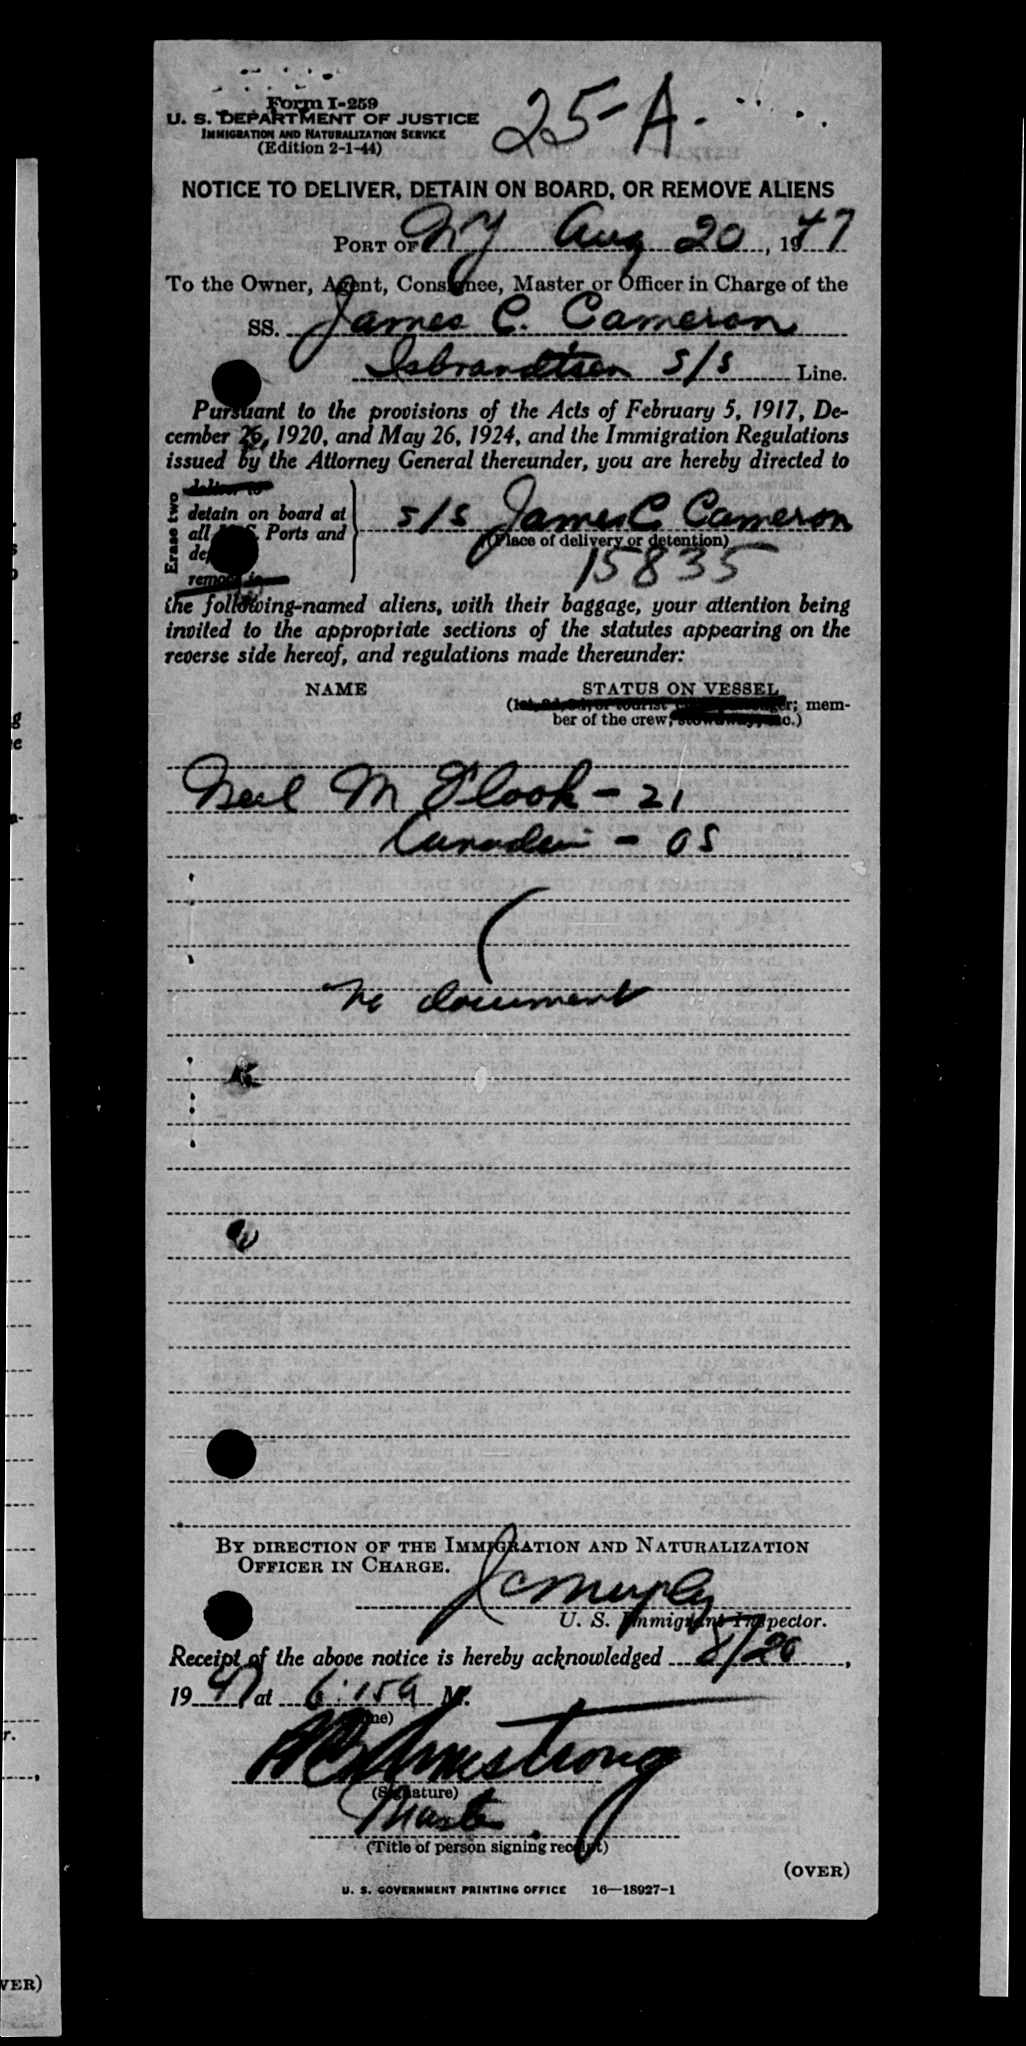 25-A.
Form I-259
U. S. DEPARTMENT OF JUSTICE
IMMIGRATION AND NATURALIZATION SERVICE
(Edition 2-1-44)
NOTICE TO DELIVER, DETAIN ON BOARD, OR REMOVE ALIENS
PORT OF NY Aug 20, 1947
To the Owner, Agent, Consignee, Master or Officer in Charge of the
SS. James C. Cameron
Isbrandtsen s/s Line.
Pursuant to the provisions of the Acts of February 5, 1917, De-
cember 26, 1920, and May 26, 1924, and the Immigration Regulations
issued by the Attorney General thereunder, you are hereby directed to
Erase two
deliver to
detain on board at
all Ports and
remove to
s/s James C Cameron
(Place of delivery or detention)
15835
the following-named aliens, with their baggage, your attention being
invited to the appropriate sections of the statutes appearing on the
reverse side hereof, and regulations made thereunder:
NAME STATUS ON VESSEL
(1st, 2d, 3d, or tourist passenger; mem-
ber of the crew; stowaway, etc.)
Neil M Flook - 21
Canadian - OS
(
No document
BY DIRECTION OF THE IMMIGRATION AND NATURALIZATION
OFFICER IN CHARGE.
JC Murphy
U. S. Immigrant Inspector.
Receipt of the above notice is hereby acknowledged 8/20,
1947 at 6:15 a M.
(Time)
Armstrong
(Signature)
Master
(Title of person signing receipt)
(OVER)
U. S. GOVERNMENT PRINTING OFFICE 16—18927-1
VER)